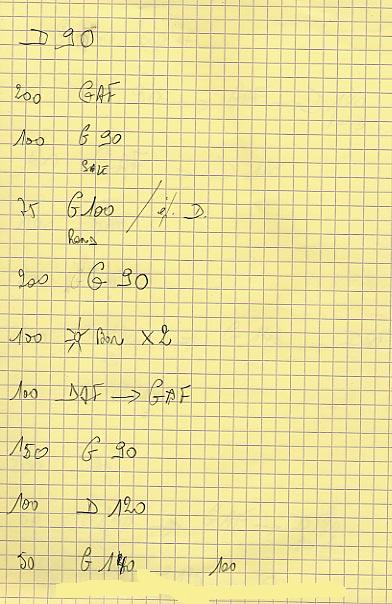 D 90
200 GAF
100 G 90
75 G100 / D.
Rond
200 G 90
100 Bon X2
100 DAF → GAF
150 G 90
100 D 120
50 100